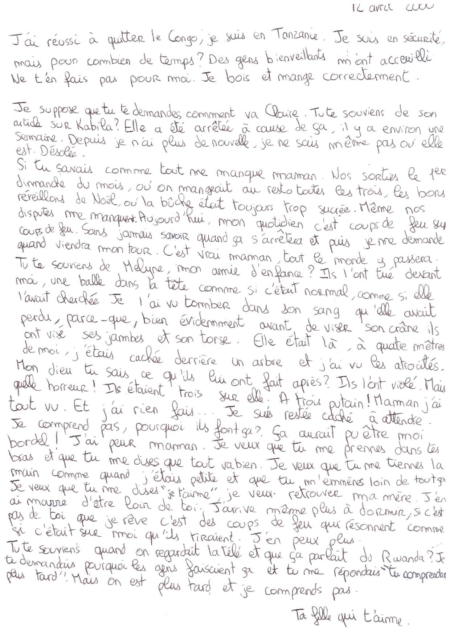 12 avril
J'ai réussi à quitter le Congo, je suis en Tanzanie. Je suis en sécurité,
mais pour combien de temps? Des gens bienveillants m'ont accueilli
Ne t'en fais pas pour moi. Je bois et mange correctement.
Je suppose que tu te demandes comment va Claire. Tu te souviens de son
article sur Kabila? Elle a été arrêtée à cause de ça, il y a environ une
semaine. Depuis je n'ai plus de nouvelle, je ne sais même pas où elle
est. Désolée.
Si tu savais comme tout me manque maman. Nos sorties le 1er
dimanche du mois, où on mangeait au resto toutes les trois, les bons
réveillons de Noël, où la bûche était toujours trop sucrée. Même nos
disputes me manquent. Aujourd'hui, mon quotidien c'est coups de feu sur
coups de feu. Sans jamais savoir quand ça s'arrêtera et puis je me demande
quand viendra mon tour. C'est vrai maman, tout le monde y passera.
Tu te souviens de mon amie d'enfance? Ils l'ont tué devant
moi, une balle dans la tête comme si c'était normal, comme si elle
l'avait cherchée Je l'ai vu tomber dans son sang qu'elle avait
perdu, parce-que, bien évidemment avant de viser son crâne ils
ont visé ses jambes et son torse. Elle était là, à quatre mètres
de moi, j'étais cachée derrière un arbre et j'ai vu les atrocités.
Mon dieu tu sais ce qu'ils lui ont fait après? Ils l'ont violé. Mais
quelle horreur! Ils étaient trois sur elle. A trois putain! Maman j'ai
tout vu. Et j'ai rien fais... Je suis restée caché à attendre.
Je comprend pas, pourquoi ils font ça?. Ça aurait pu être moi
bordel! J'ai peur maman. Je veux que tu me prennes dans tes
bras et que tu me dises que tout va bien. Je veux que tu me tiennes la
main comme quand j'étais petite et que tu m'emmènes loin de tout ça
Je veux que tu me dises "je t'aime", je veux retrouver ma mère. J'en
ai marre d'être loin de toi. J'arrive même plus à dormir, si c'est
pas de toi que je rêve c'est des coups de feu qui résonnent comme
si c'était sur moi qu'ils tiraient. J'en peux plus.
Tu te souviens quand on regardait la télé et que ça parlait du Rwanda? Je
te demandais pourquoi les gens faisaient ça et tu me répondais "tu comprendras
plus tard". Mais on est plus tard et je comprends pas.
Ta fille qui t'aime.